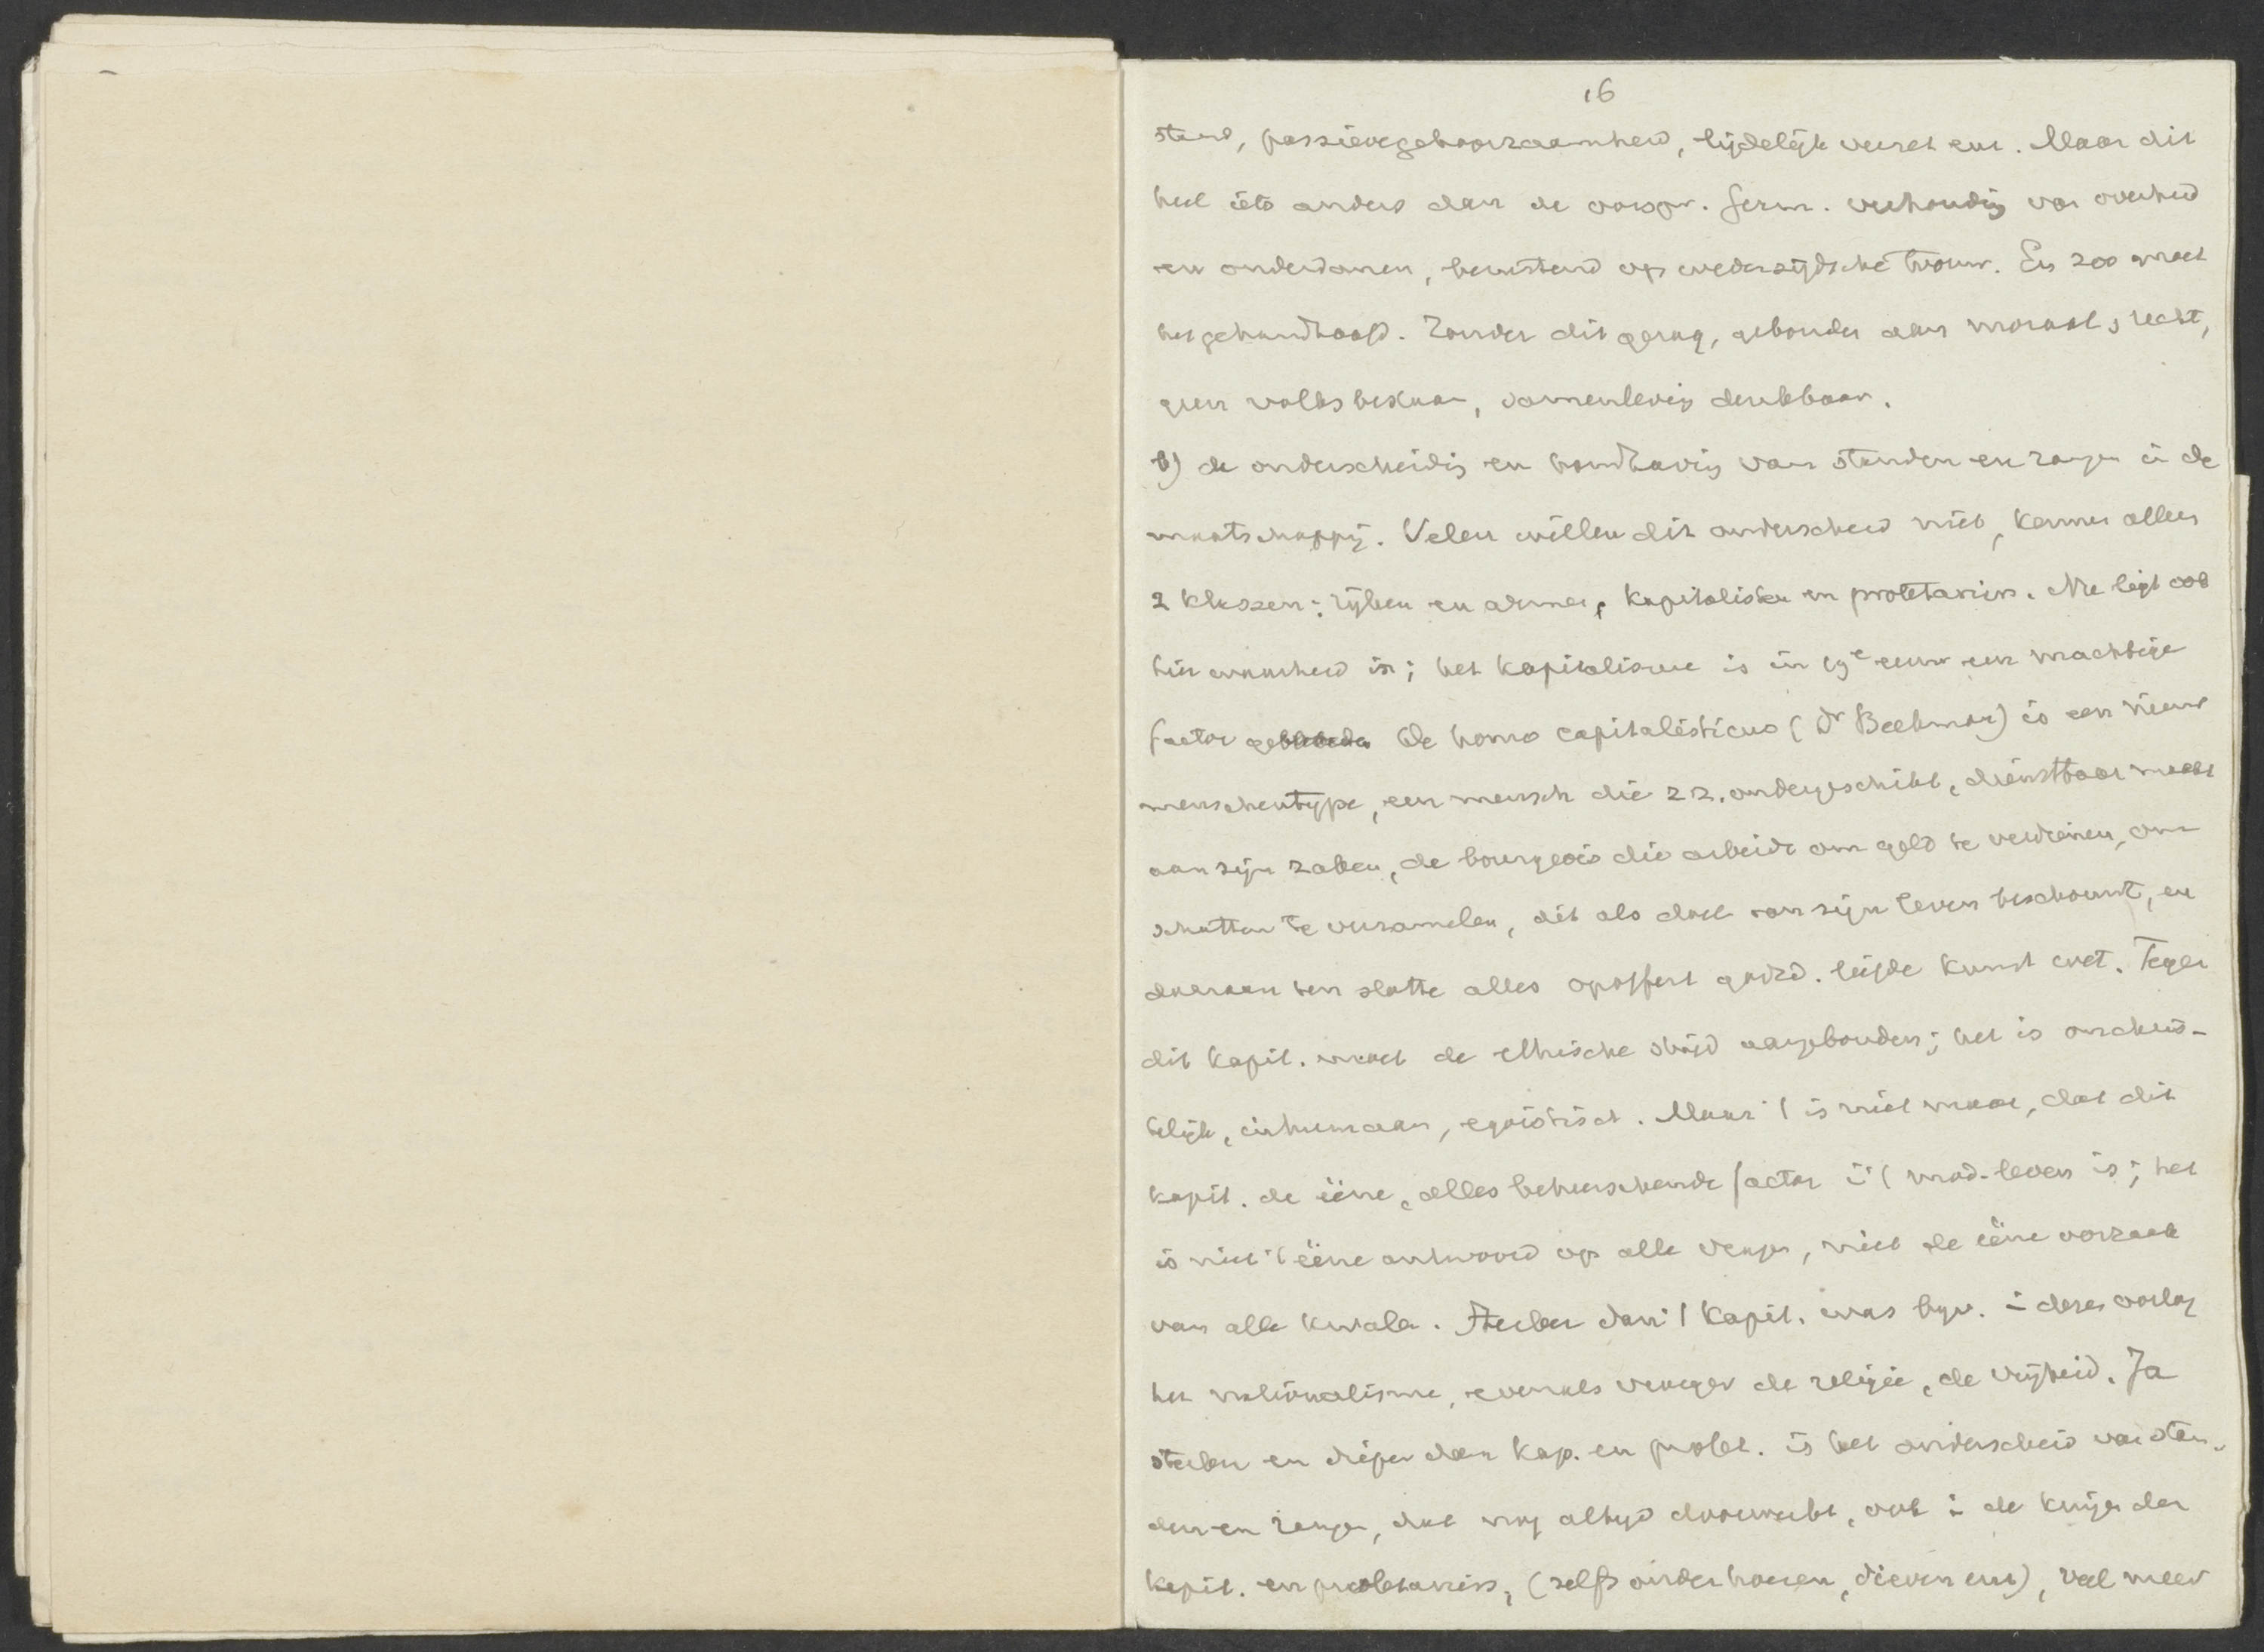 16
stand, passievegehoorzaamheid, lijdelijk verzet enz. Maar dit
heel iets anders dan de oorspr. Germ. verhoudig van overheid
en onderdanen, berustend op wederzijdsche trouw. En zoo moet
het gehandhaafd. Zonder dit gezag, gebonden aan moraal, recht,
geen volksbestaan, samenlevig denkbaar.
b) de onderscheidig en handhavig van standen en rangen in de
maatschappij. Velen willen dit onderscheid niet, kennen alleen
2 klassen: rijken en armen, kapitalisten en proletariërs. Nu ligt ook
hier waarheid in; het kapitalisme is in 19e eeuw een machtige
factor De homo capitalisticus (Dr Beekman) is een nieuw
menschentype, een mensch die z.z. ondergeschikt, dienstbaar maakt
aan zijn zaken, de bourgeois die arbeidt om geld te verdienen, om
schatten te verzamelen, dit als doel van zijn leven beschouwt, en
daaraan ten slotte alles opoffert godsd. liefde kunst enz. Tegen
dit kapit. moet de ethische strijd aangebonden; het is onchris-
telijk, inhumaan, egoistisch. Maar 't is niet waar, dat dit
kapit. de ééne, alles beheerschende factor i 't mod-leven is; het
is niet 't ééne antwoord op alle vragen, niet de ééne oorzaak
van alle kwalen. Sterker dan 't kapit. was bijv. i dezen oorlog
het nationalisme, evenals vroeger de religie, de vrijheid. Ja
sterker en dieper dan kap. en prolet. is het onderscheid van stan-
den en rangen, dat nog altijd doorwerkt, ook i de kringen der
kapit. en proletariërs, (zelfs onder hoeren, dieven enz), veel meer